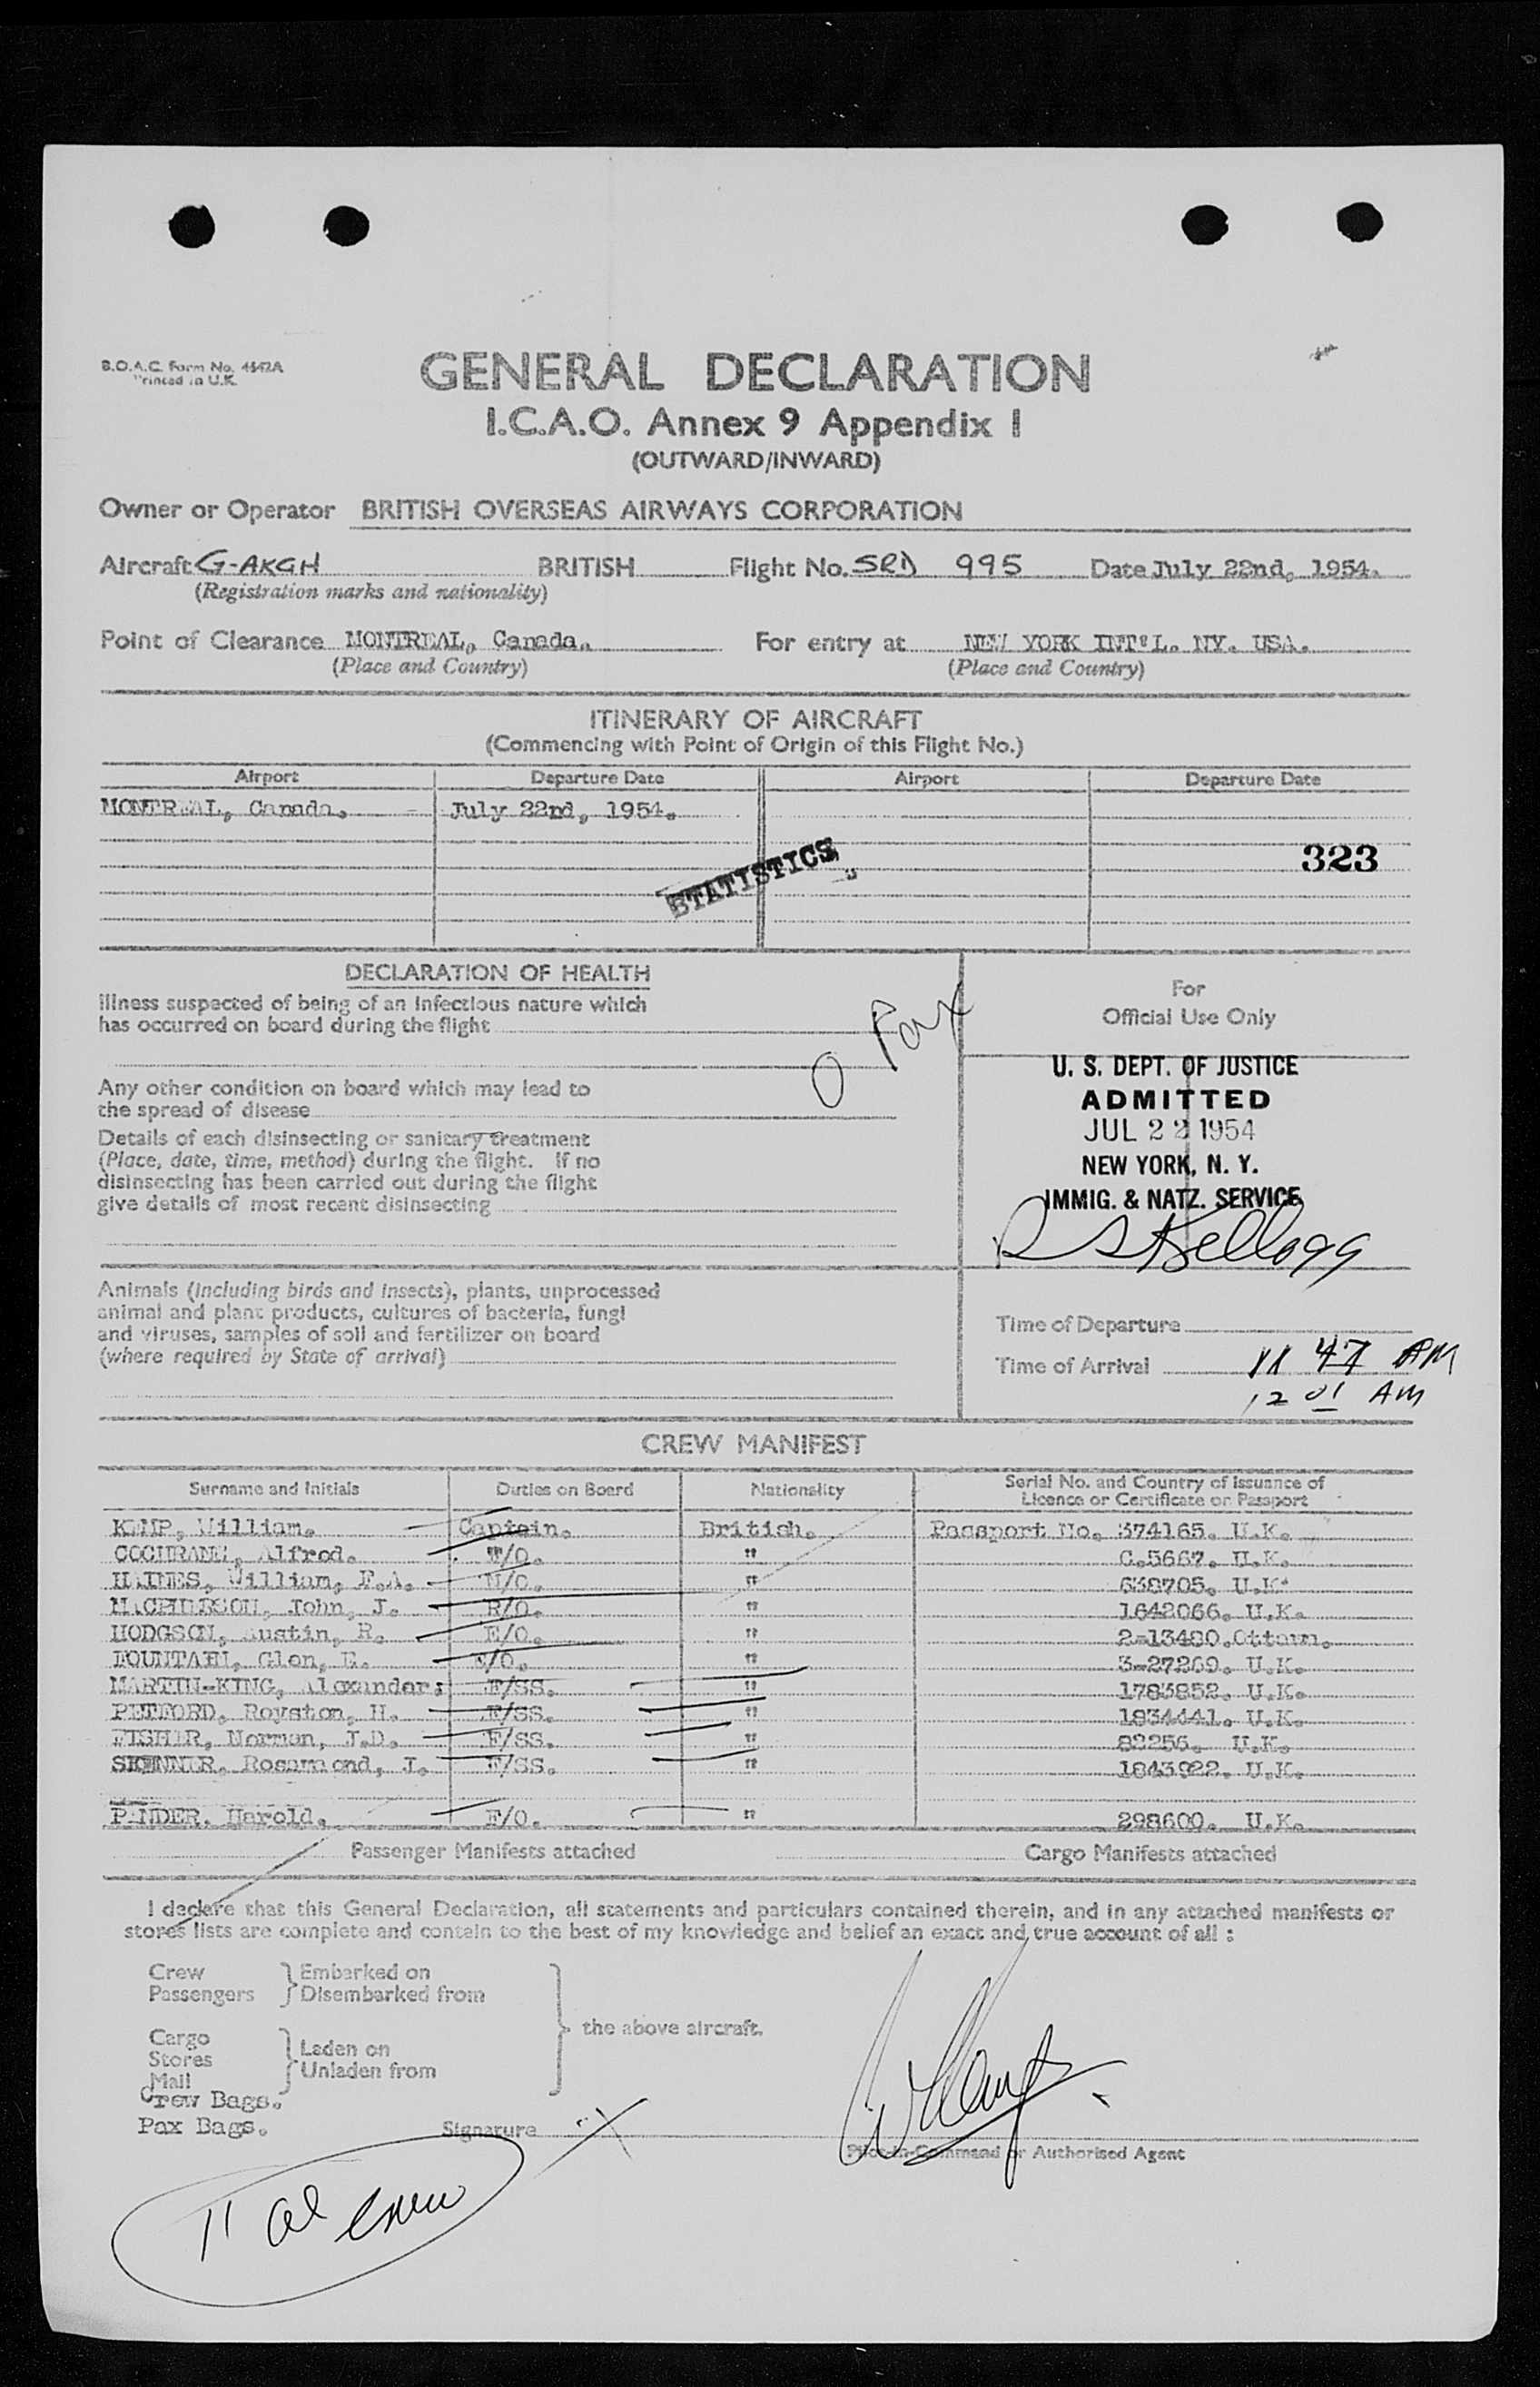 B.O.A.C. Form No. 4542A
Printed in U.K.
GENERAL DECLARATION
I.C.A.O. Annex 9 Appendix I
(OUTWARD/INWARD)
Owner or Operator BRITISH OVERSEAS AIRWAYS CORPORATION
Aircraft G-AKGH BRITISH Flight No. SRD 995 Date July 22nd, 1954.
(Registration marks and nationality)
Point of Clearance MONTREAL, Canada. For entry at NEW YORK INT'L. NY. USA.
(Place and Country) (Place and Country)
ITINERARY OF AIRCRAFT
(Commencing with Point of Origin of this Flight No.)
Airport Departure Date Airport Departure Date
MONTREAL, Canada. July 22nd, 1954.
323
STATISTICS
DECLARATION OF HEALTH
Illness suspected of being of an infectious nature which
has occurred on board during the flight
0 Pax
Any other condition on board which may lead to
the spread of disease
Details of each disinsecting or sanitary treatment
(Place, date, time, method) during the flight. If no
disinsecting has been carried out during the flight
give details of most recent disinsecting
For
Official Use Only
U. S. DEPT. OF JUSTICE
ADMITTED
JUL 22 1954
NEW YORK, N. Y.
IMMIG. & NATZ. SERVICE
R S Kellogg
Animals (including birds and insects), plants, unprocessed
animal and plant products, cultures of bacteria, fungi
and viruses, samples of soil and fertilizer on board
(where required by State of arrival)
Time of Departure
Time of Arrival 11 47 AM
12 01 AM
CREW MANIFEST
Surname and Initials Duties on Board Nationality Serial No. and Country of issuance of
Licence or Certificate or Passport
KEMP, William. Captain. British. Passport No. 374165. U.K.
COCHRANE, Alfred. F/O. " C.5667. U.K.
HAINES, William, F.A. N/O. " 638705. U.K.
MACPHERSON, John, J. R/O. " 1642066. U.K.
HODGSON, Austin, R. E/O. " 2-13480.Ottawa.
FOUNTAIN, Glen, E. F/O. " 3-27269. U.K.
MARTIN-KING, Alexander. F/SS. " 1783852. U.K.
PETFORD, Royston, H. F/SS. " 1834441. U.K.
FISHER, Norman, J.D. F/SS. " 82256. U.K.
SKINNER, Rosamond, J. F/SS. " 1843922. U.K.
PINDER, Harold. E/O. " 298600. U.K.
Passenger Manifests attached Cargo Manifests attached
I declare that this General Declaration, all statements and particulars contained therein, and in any attached manifests or
stores lists are complete and contain to the best of my knowledge and belief an exact and true account of all :
Crew Embarked on
Passengers Disembarked from
the above aircraft.
Cargo Laden on
Stores Unladen from
Mail
Crew Bags.
Pax Bags.
Signature W Kemp
Pilot-in-Command or Authorised Agent
11 crew